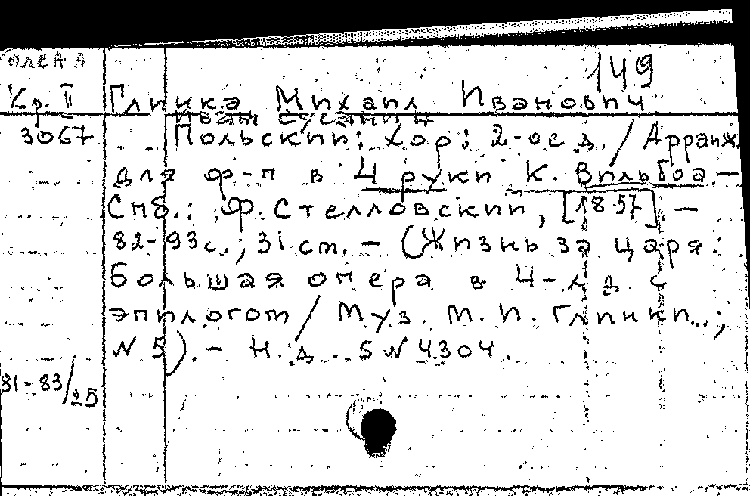 149
Хр. II Глинка Михаил Иванович
Иван Сусанин
3067 Польский: Хор: 2-ое д. / Арранж.
для ф-п в 4 руки К. Вильбоа. —
Спб.: Ф. Стелловский, [1857] —
82-93 с.; 31 см. — (Жизнь за царя:
большая опера в 4-х д. с
эпилогом / Муз. М. И. Глинки..;
N 5). — Н. д. SN 4304.
81-83/25